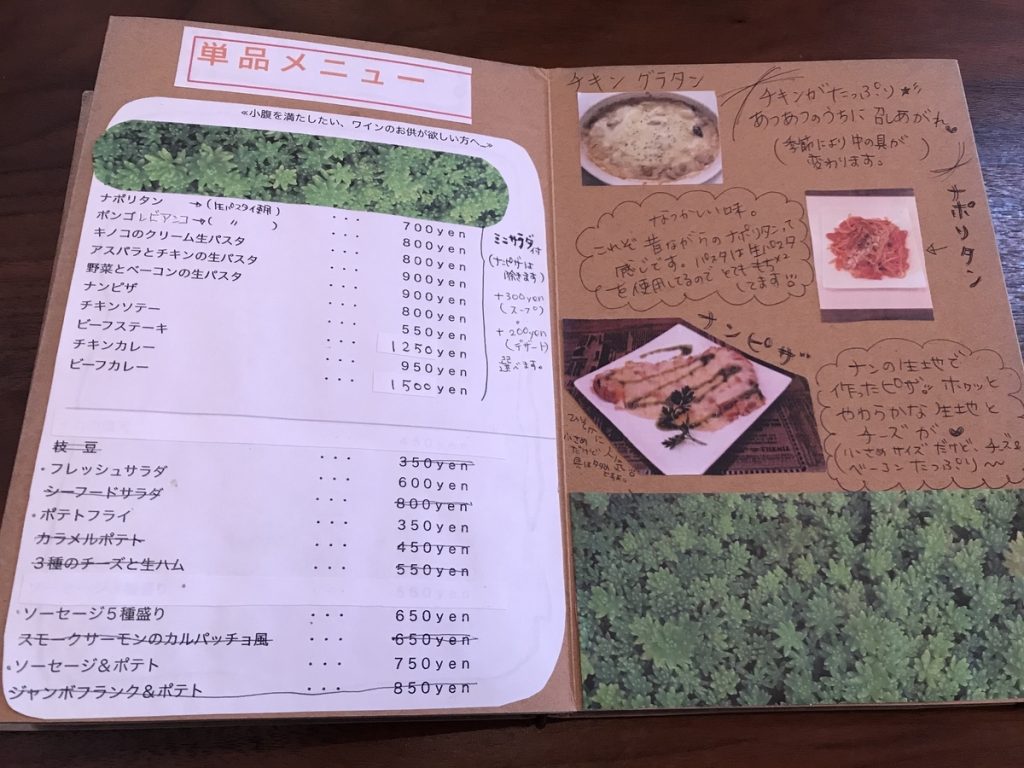 単品メニュー
≪小腹を満たしたい、ワインのお供が欲しい方へ_≫
ナポリタン →(生パスタ使用) ･･･ 700yen
ボンゴレビアンコ→( 〃 ) ･･･ 800yen
キノコのクリーム生パスタ ･･･ 800yen
アスパラとチキンの生パスタ ･･･ 900yen
野菜とベーコンの生パスタ ･･･ 900yen
ナンピザ ･･･ 800yen
チキンソテー ･･･ 550yen
ビーフステーキ ･･･ 1250yen
チキンカレー ･･･ 950yen
ビーフカレー ･･･ 1500yen
ミニサラダ付
(ナンピザは
除きます)
+300yen
(スープ)
+200yen
(デザート)
選べます。
枝豆 ･･･ 350yen
・フレッシュサラダ ･･･ 600yen
シーフードサラダ ･･･ 800yen
・ポテトフライ ･･･ 350yen
カラメルポテト ･･･ 450yen
３種のチーズと生ハム ･･･ 550yen
・ソーセージ５種盛り ･･･ 650yen
スモークサーモンのカルパッチョ風 ･･･ 650yen
・ソーセージ＆ポテト ･･･ 750yen
ジャンボフランク＆ポテト ･･･ 850yen
チキン グラタン
チキンがたっぷり★
あつあつのうちに 召しあがれ♥
(季節により中の具が
変わります。)
ナポリタン
なつかしい味。
これぞ 昔ながらのナポリタンって
感じです。パスタは生パスタ
を使用してるので とてもモチメメ
してます
ナンピザ
ナンの生地で
作ったピザ。ホワッと
やわらかな 生地と
チーズが♥
小さめ サイズ だけど、チーズと
ベーコン たっぷり〜
ひそかに
小さめ
だけど
具は多め